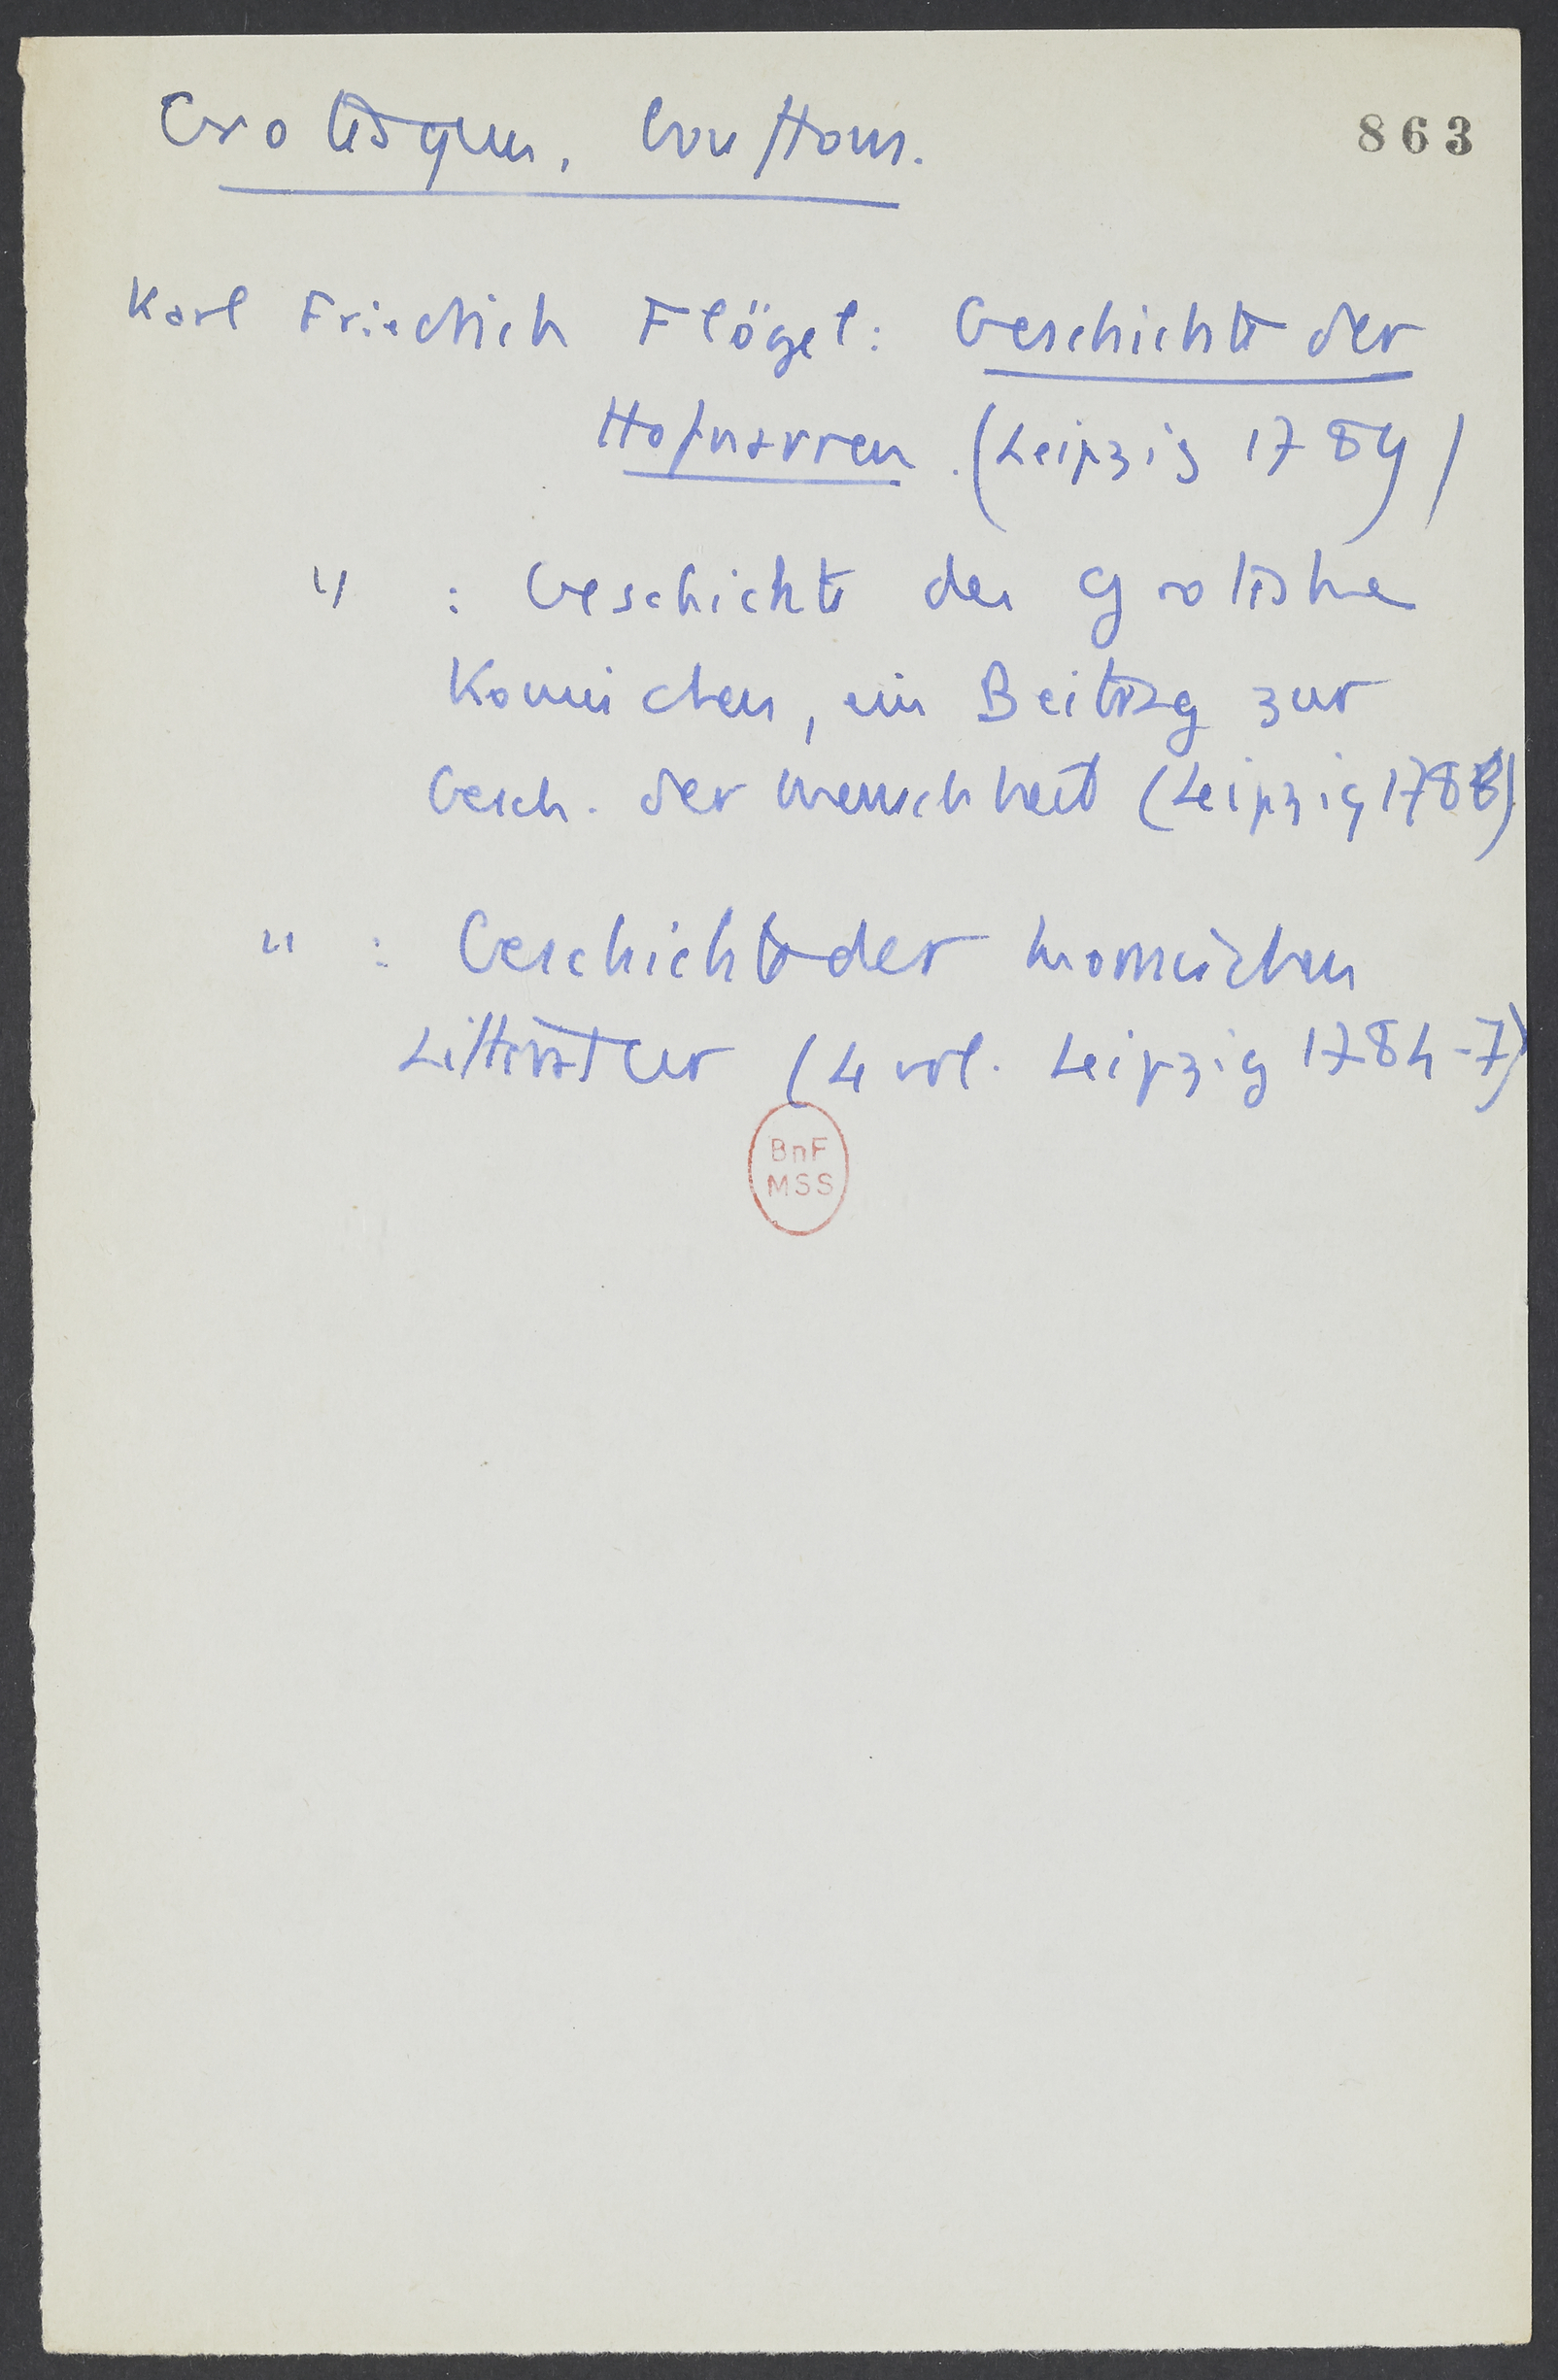 Grotesques. Bouffons.
863
Karl Friedrich Flögel: Geschichte der
Hofnarren. (Leipzig 1789)
" : Geschichte des Groteske
Komischen, ein Beitrag zur
Gesch. der Menschheit (Leipzig 1788)
" : Geschichte der komischen
Litteratur (4 vol. Leipzig 1784-7)
BnF
MSS